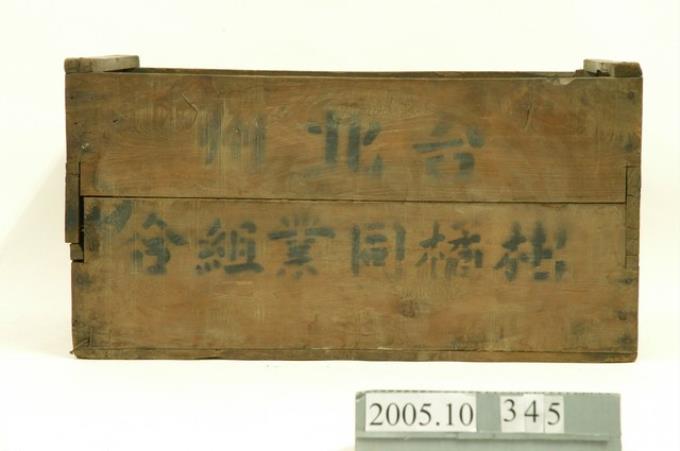 台北州
柑橘同業組合
2005.10 345